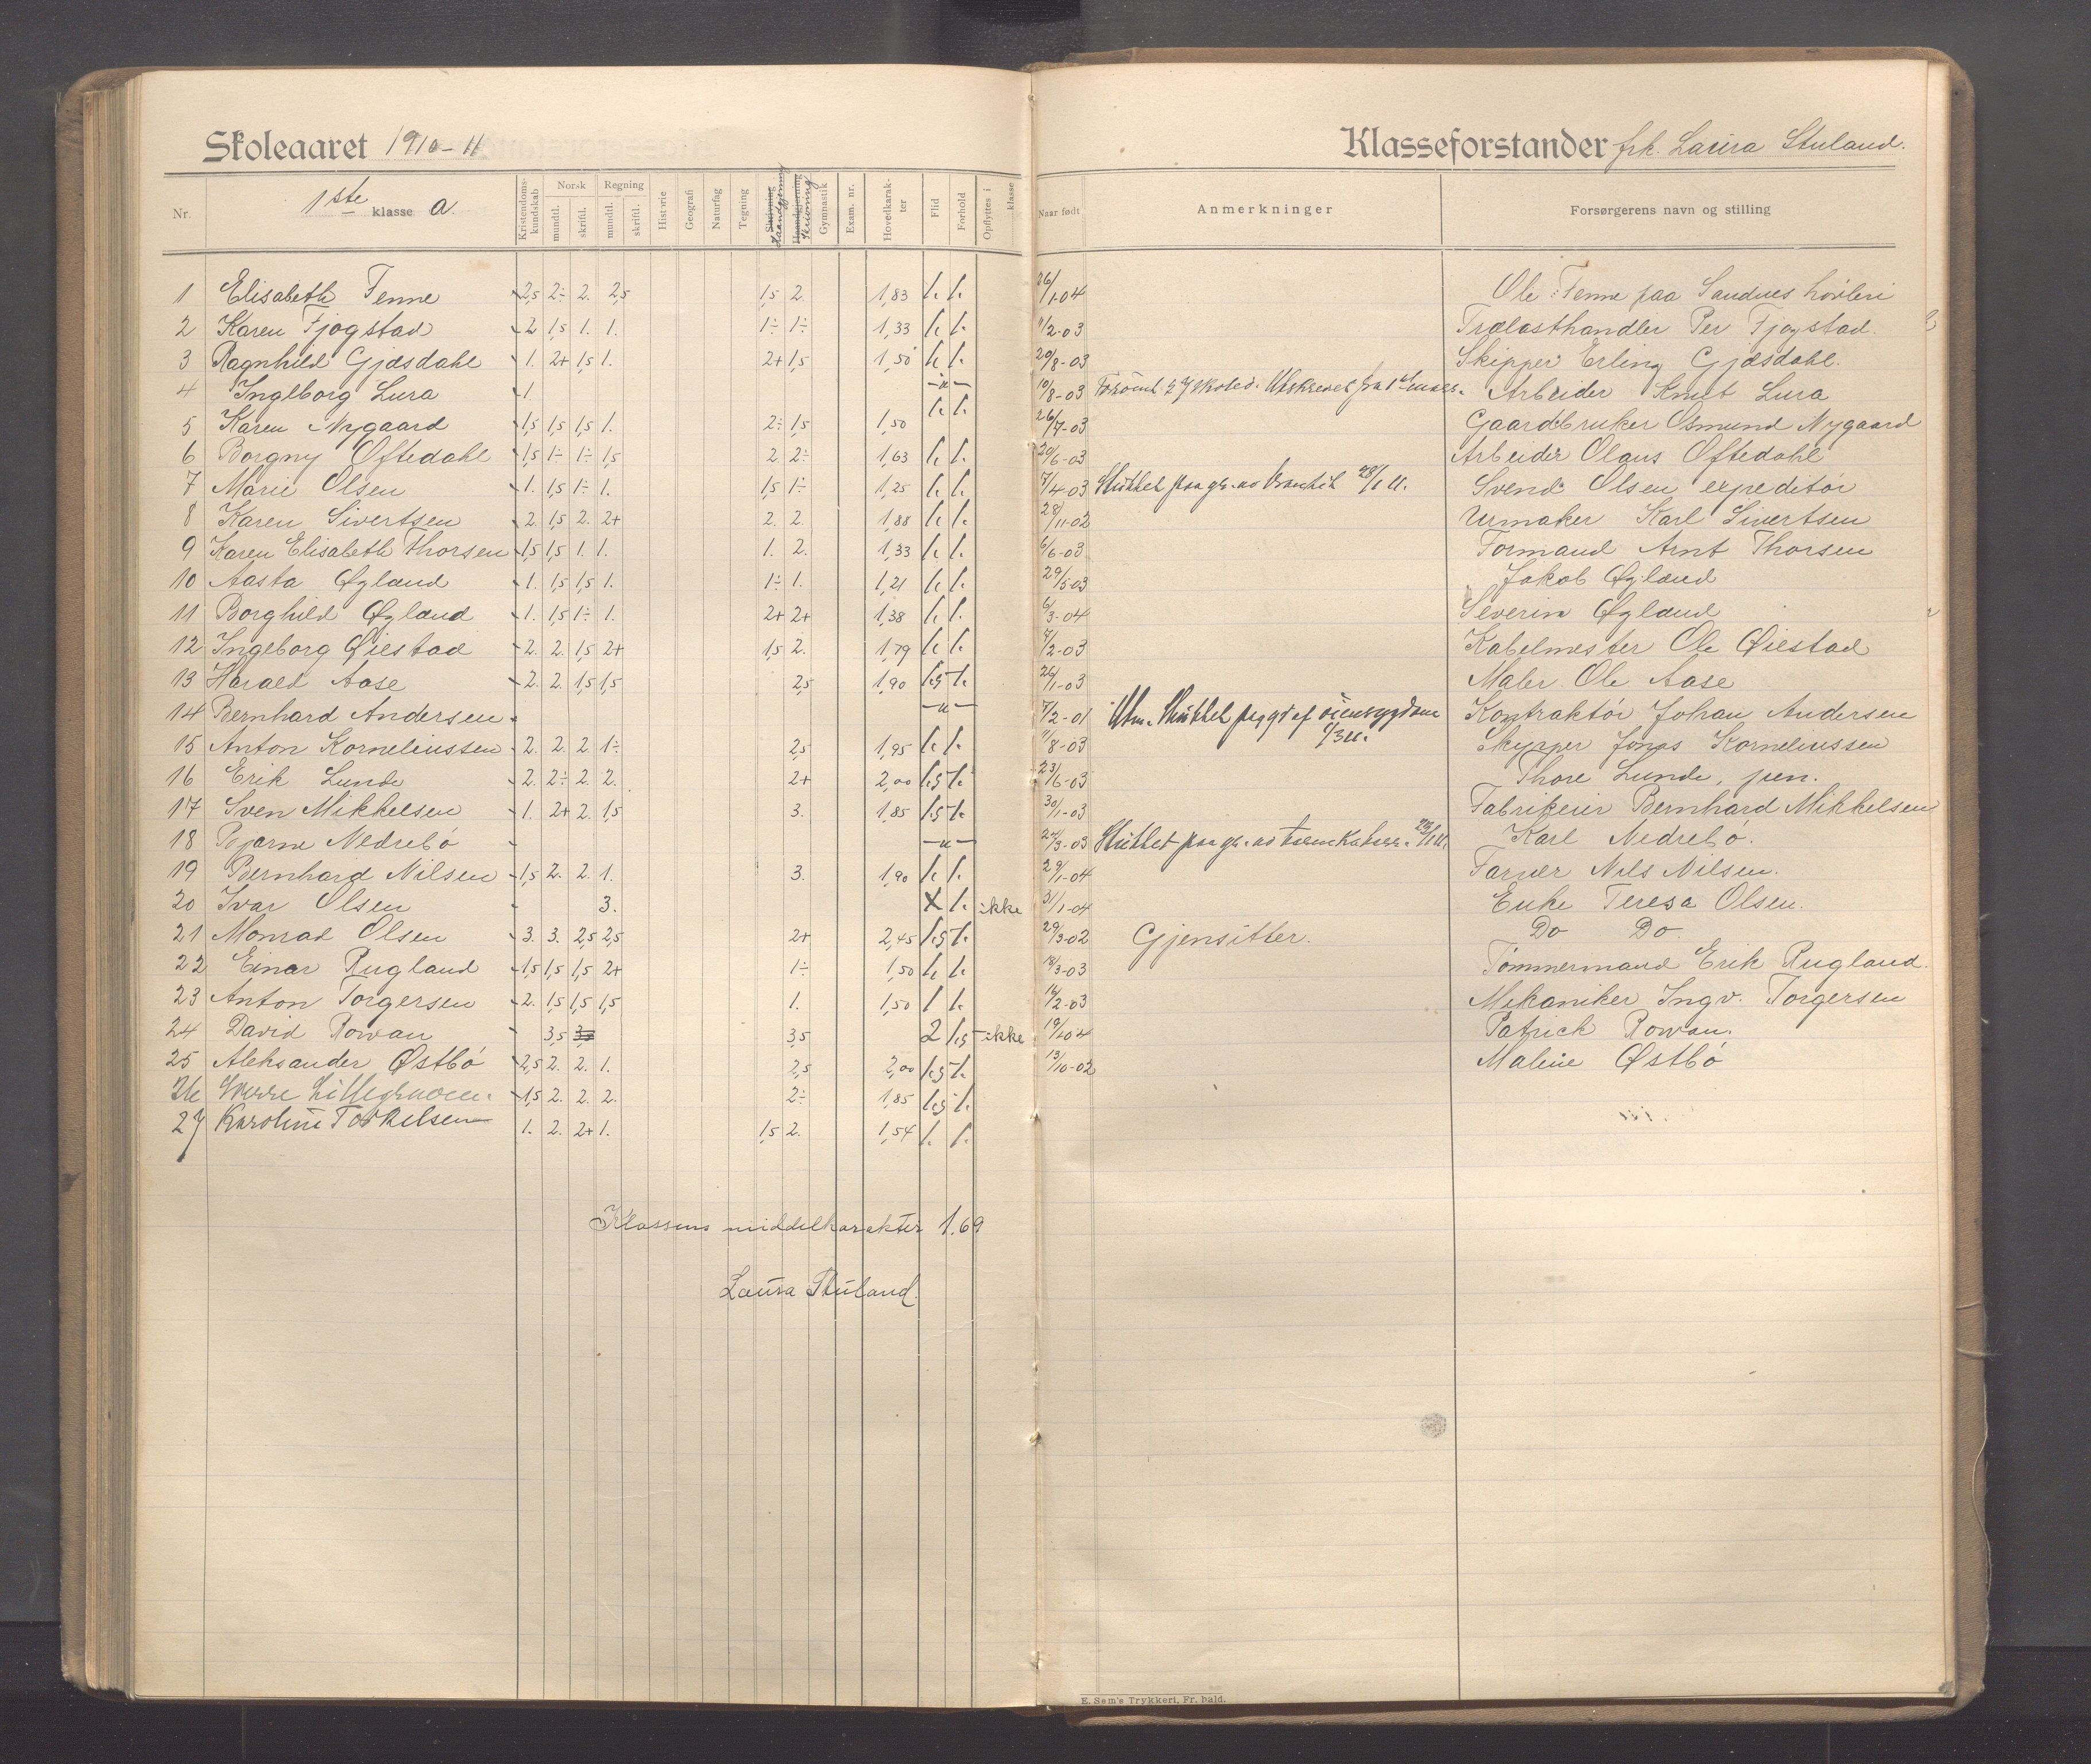 Skoleaaret 1910-11
Klasseforstander frk. Laura Stuland.
Nr. 1ste klasse a. Kristendomskundskab Norsk mundtl. skriftl. Regning mundtl. skriftl. Historie Geografi Naturfag Tegning Skrivning Haandgjerning Haandgjerning Skrivning Gymnastik Exam. nr. Hovedkarakter Flid Forhold Opflyttes i klasse Naar født Anmerkninger Forsørgerens navn og stilling
1 Elisabeth Fenne 2,5 2÷ 2. 2,5 1,5 2 1,83 1. 1. 26/1-04 Ole Fenne paa Sandnes høvleri
2 Karen Fjogstad 2 1,5 1. 1. 1÷ 1÷ 1,33 1. 1. 11/2-03 Trælasthandler Per Fjogstad.
3 Ragnhild Gjæsdahl 1. 2+ 1,5 1. 2+ 1,5 1,50 1. 1. 20/8-03 Skipper Erling Gjæsdahl.
4 Ingeborg Lura 1. -"- 10/8-03 Arbeider Knut Lura
5 Karen Nygaard 1,5 1,5 1,5 1. 2÷ 1,5 1,50 1. 1. 26/7-03 Gaardbruker Osmund Nygaard
6 Borgny Oftedahl 1,5 1÷ 1÷ 1,5 2. 2÷ 1,63 1. 1. 20/6-03 Arbeider Olaus Oftedahl
7 Marie Olsen 1. 1,5 1÷ 1. 1,5 1÷ 1,25 1. 1. 7/4-03 Sluttet paa gr. av 28/1 11. Svend Olsen expeditør
8 Karen Sivertsen 2. 1,5 2. 2+ 2. 2. 1,88 1. 1. 28/11-02 Urmaker Karl Sivertsen
9 Karen Elisabeth Thorsen 1,5 1,5 1. 1. 1. 2. 1,33 1. 1. 6/6-03 Formand Arnt Thorsen
10 Aasta Øgland 1. 1,5 1,5 1. 1÷ 1. 1,21 1. 1. 29/5-03 Jakob Øgland
11 Borghild Øgland 1. 1,5 1÷ 1. 2+ 2+ 1,38 1. 1. 6/3-04 Severin Øgland
12 Ingeborg Øiestad 2. 2. 1,5 2+ 1,5 2. 1,79 1. 1. 7/2-03 Kabelmester Ole Øiestad
13 Harald Aase 2. 2. 1,5 1,5 2,5 1,90 1,5 1. 26/1-03 Maler Ole Aase
14 Bernhard Andersen -"- 7/2-01 Utm. Sluttet pag gr af øiensygdom 1/3 11. Kontraktør Johan Andersen
15 Anton Korneliussen 2. 2. 2. 1÷ 2,5 1,95 1. 1. 11/8-03 Skipper Jonas Korneliussen
16 Erik Lunde 2. 2÷ 2. 2. 2+ 2,00 1,5 1. 23/6-03 Thore Lunde, jun.
17 Sven Mikkelsen 1. 2+ 2. 1,5 3. 1,85 1,5 1. 30/1-03 Fabrikeier Bernhard Mikkelsen
18 Bjarne Nedrebø -"- 24/3-03 Sluttet paa gr. av Karl Nedrebø.
19 Bernhard Nilsen 1,5 2. 2. 1. 3. 1,90 1. 1. 29/1-04 Farver Nils Nilsen.
20 Ivar Olsen 3. X 1. ikke 31/1-04 Enke Teresa Olsen.
21 Monrad Olsen 3. 3. 2,5 2,5 2+ 2,45 1,5 1. 29/3-02 Gjensitter. Do Do.
22 Einar Rugland 1,5 1,5 1,5 2+ 1÷ 1,50 1. 1. 18/3-03 Tømmermand Erik Rugland.
23 Anton Torgersen 2. 1,5 1,5 1,5 1. 1,50 1 1. 14/2-03 Mekaniker Ingv. Torgersen
24 David Rowan 3,5 3,5 3,5 2 1,5 ikke 19/1-04 Patrick Rowan.
25 Aleksander Østbø 2,5 2. 2. 1. 2,5 2,00 1,5 1. 13/10-02 Malene Østbø
26 Sverre 1,5 2. 2. 2. 2÷ 1,85 1,5 1.
27 Karoline Torkelsen 1. 2. 2+ 1. 1,5 2. 1,54 1. 1.
Klassens middelkarakter 1.69
Laura Stuland.
E. Sem's Trykkeri, Fr. hald.